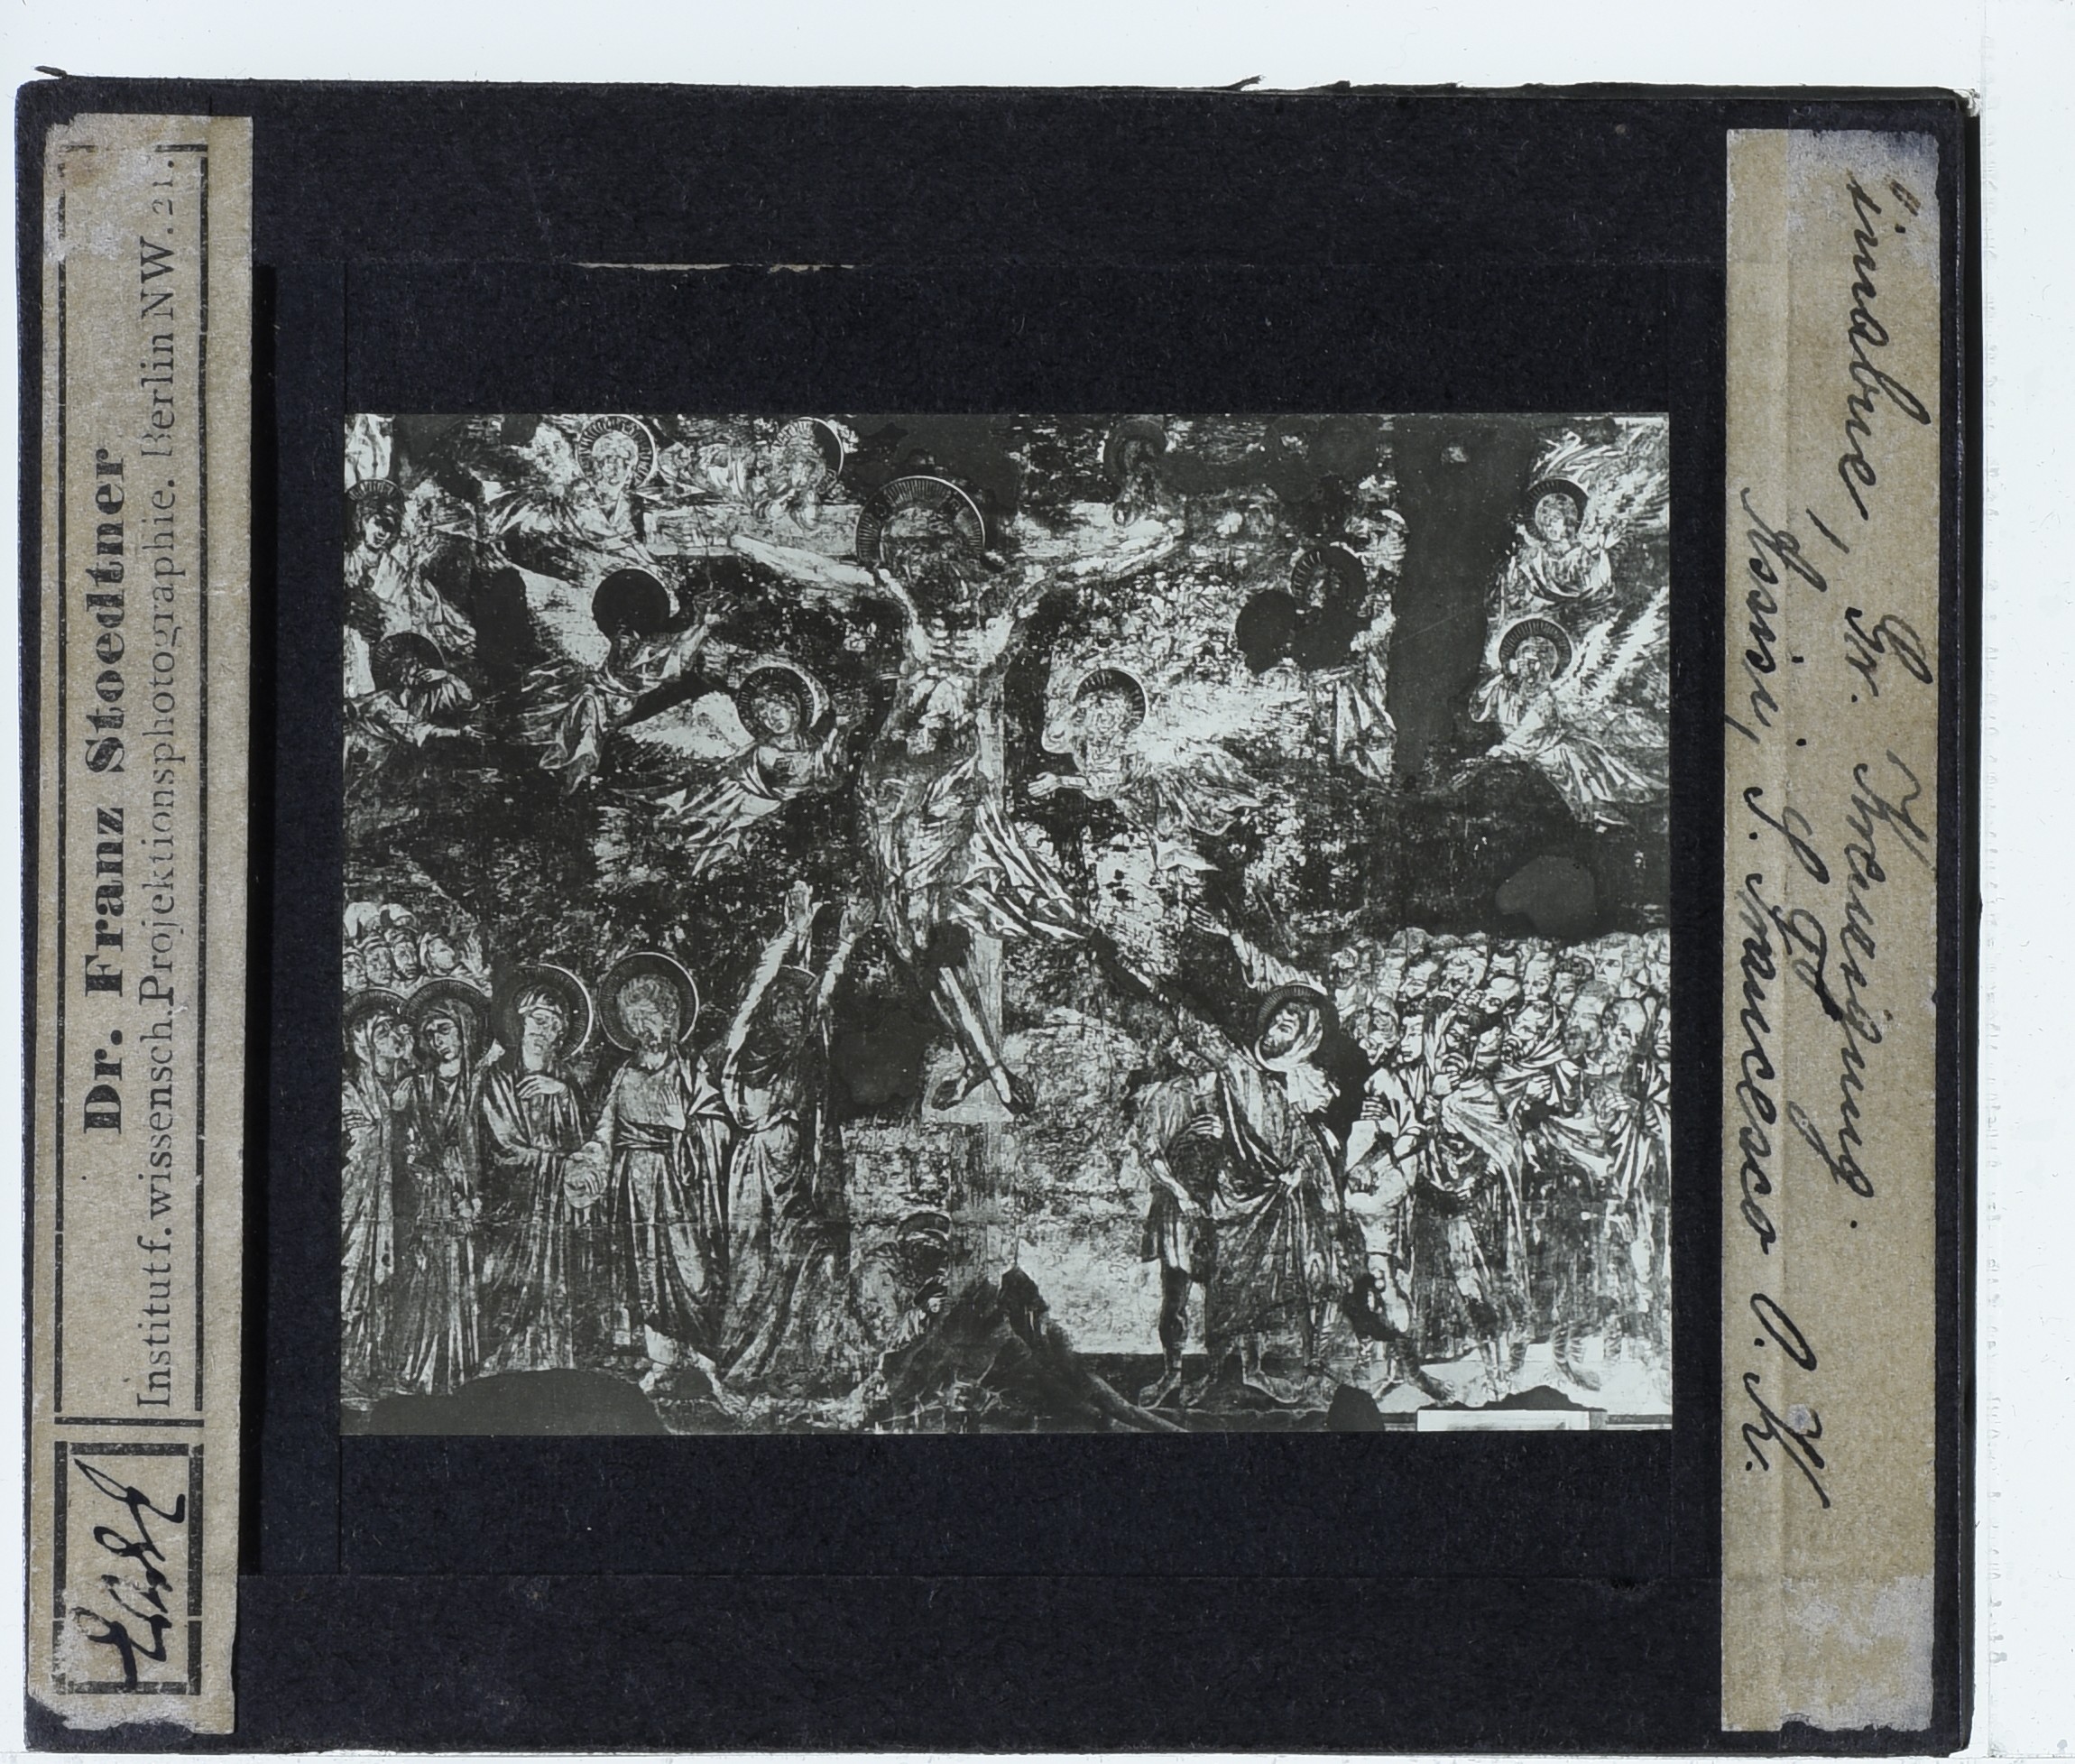 Dr. Franz Stoedtner
Institut f. wissensch. Projektionsphotographie. Berlin NW. 21.
imabue, Gr. Kreuzigung.
Assisi, S. Francesco O. K.